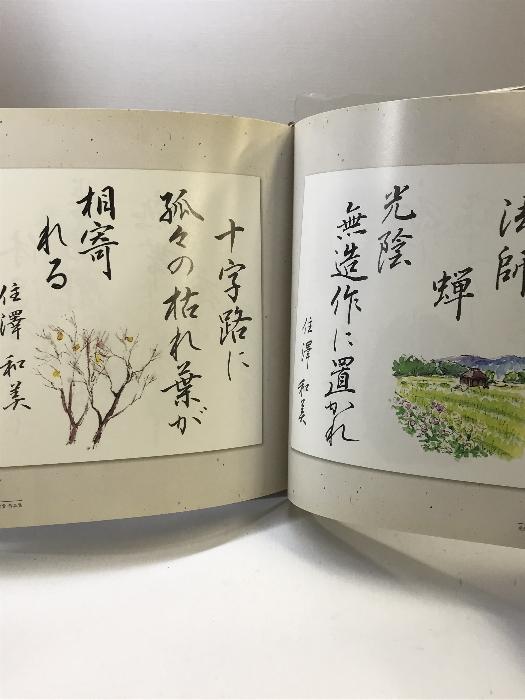 法師
蝉
光陰
無造作に置かれ
住澤和美
十字路に
孤々の枯れ葉が
相寄
れる
住澤和美